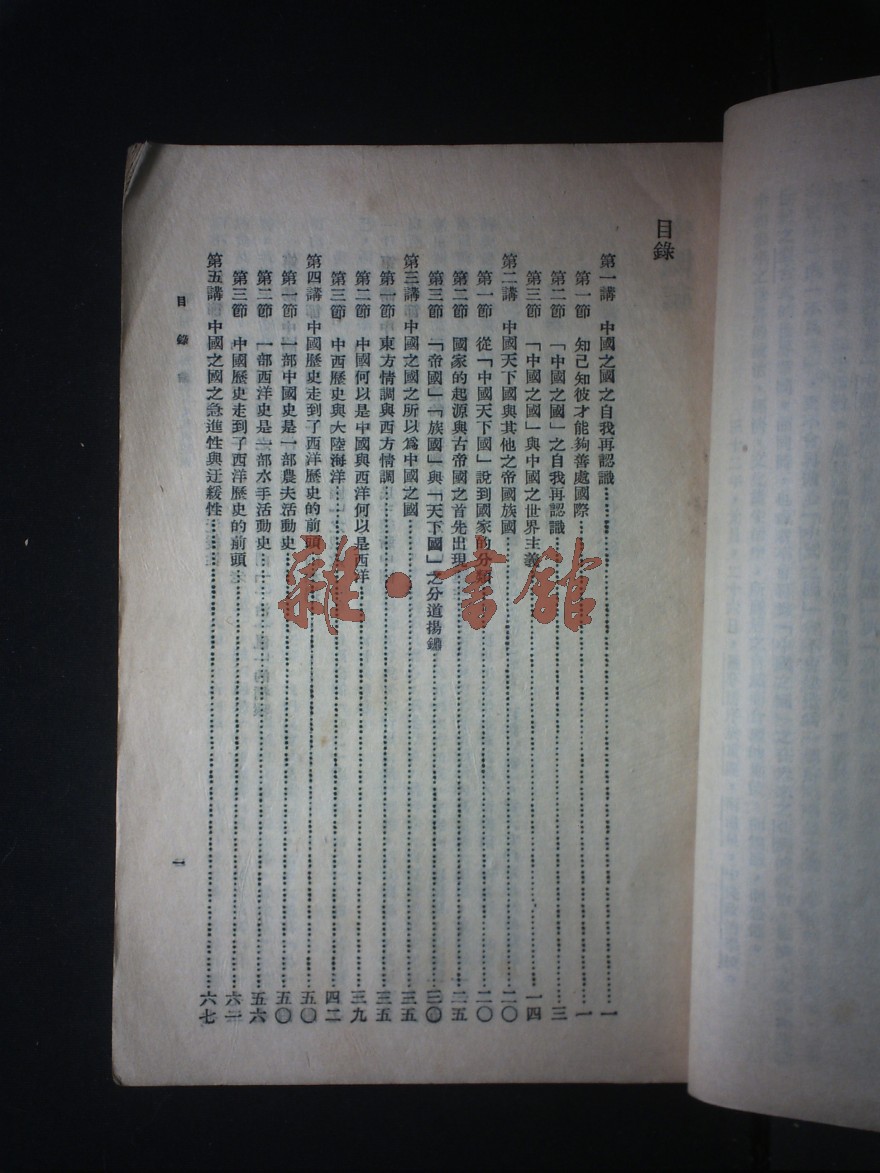 目錄
第一講 中國之國之自我再認識……一
第一節 知己知彼才能夠善處國際……一
第二節 「中國之國」之自我再認識……三
第三節 「中國之國」與中國之世界主義……一四
第二講 中國天下國與其他之帝國族國……二〇
第一節 從「中國天下國」說到國家的分類……二〇
第二節 國家的起源與古帝國之首先出現……二五
第三節 「帝國」「族國」與「天下國」之分道揚鑣……三〇
第三講 中國之國之所以爲中國之國……三五
第一節 東方情調與西方情調……三五
第二節 中國何以是中國與西洋何以是西洋……三九
第三節 中西歷史與大陸海洋……四二
第四講 中國歷史走到了西洋歷史的前頭……五〇
第一節 一部中國史是一部農夫活動史……五〇
第二節 一部西洋史是一部水手活動史……五六
第三節 中國歷史走到了西洋歷史的前頭……六一
第五講 中國之國之急進性與迂緩性……六七
目錄
一
雜·書館